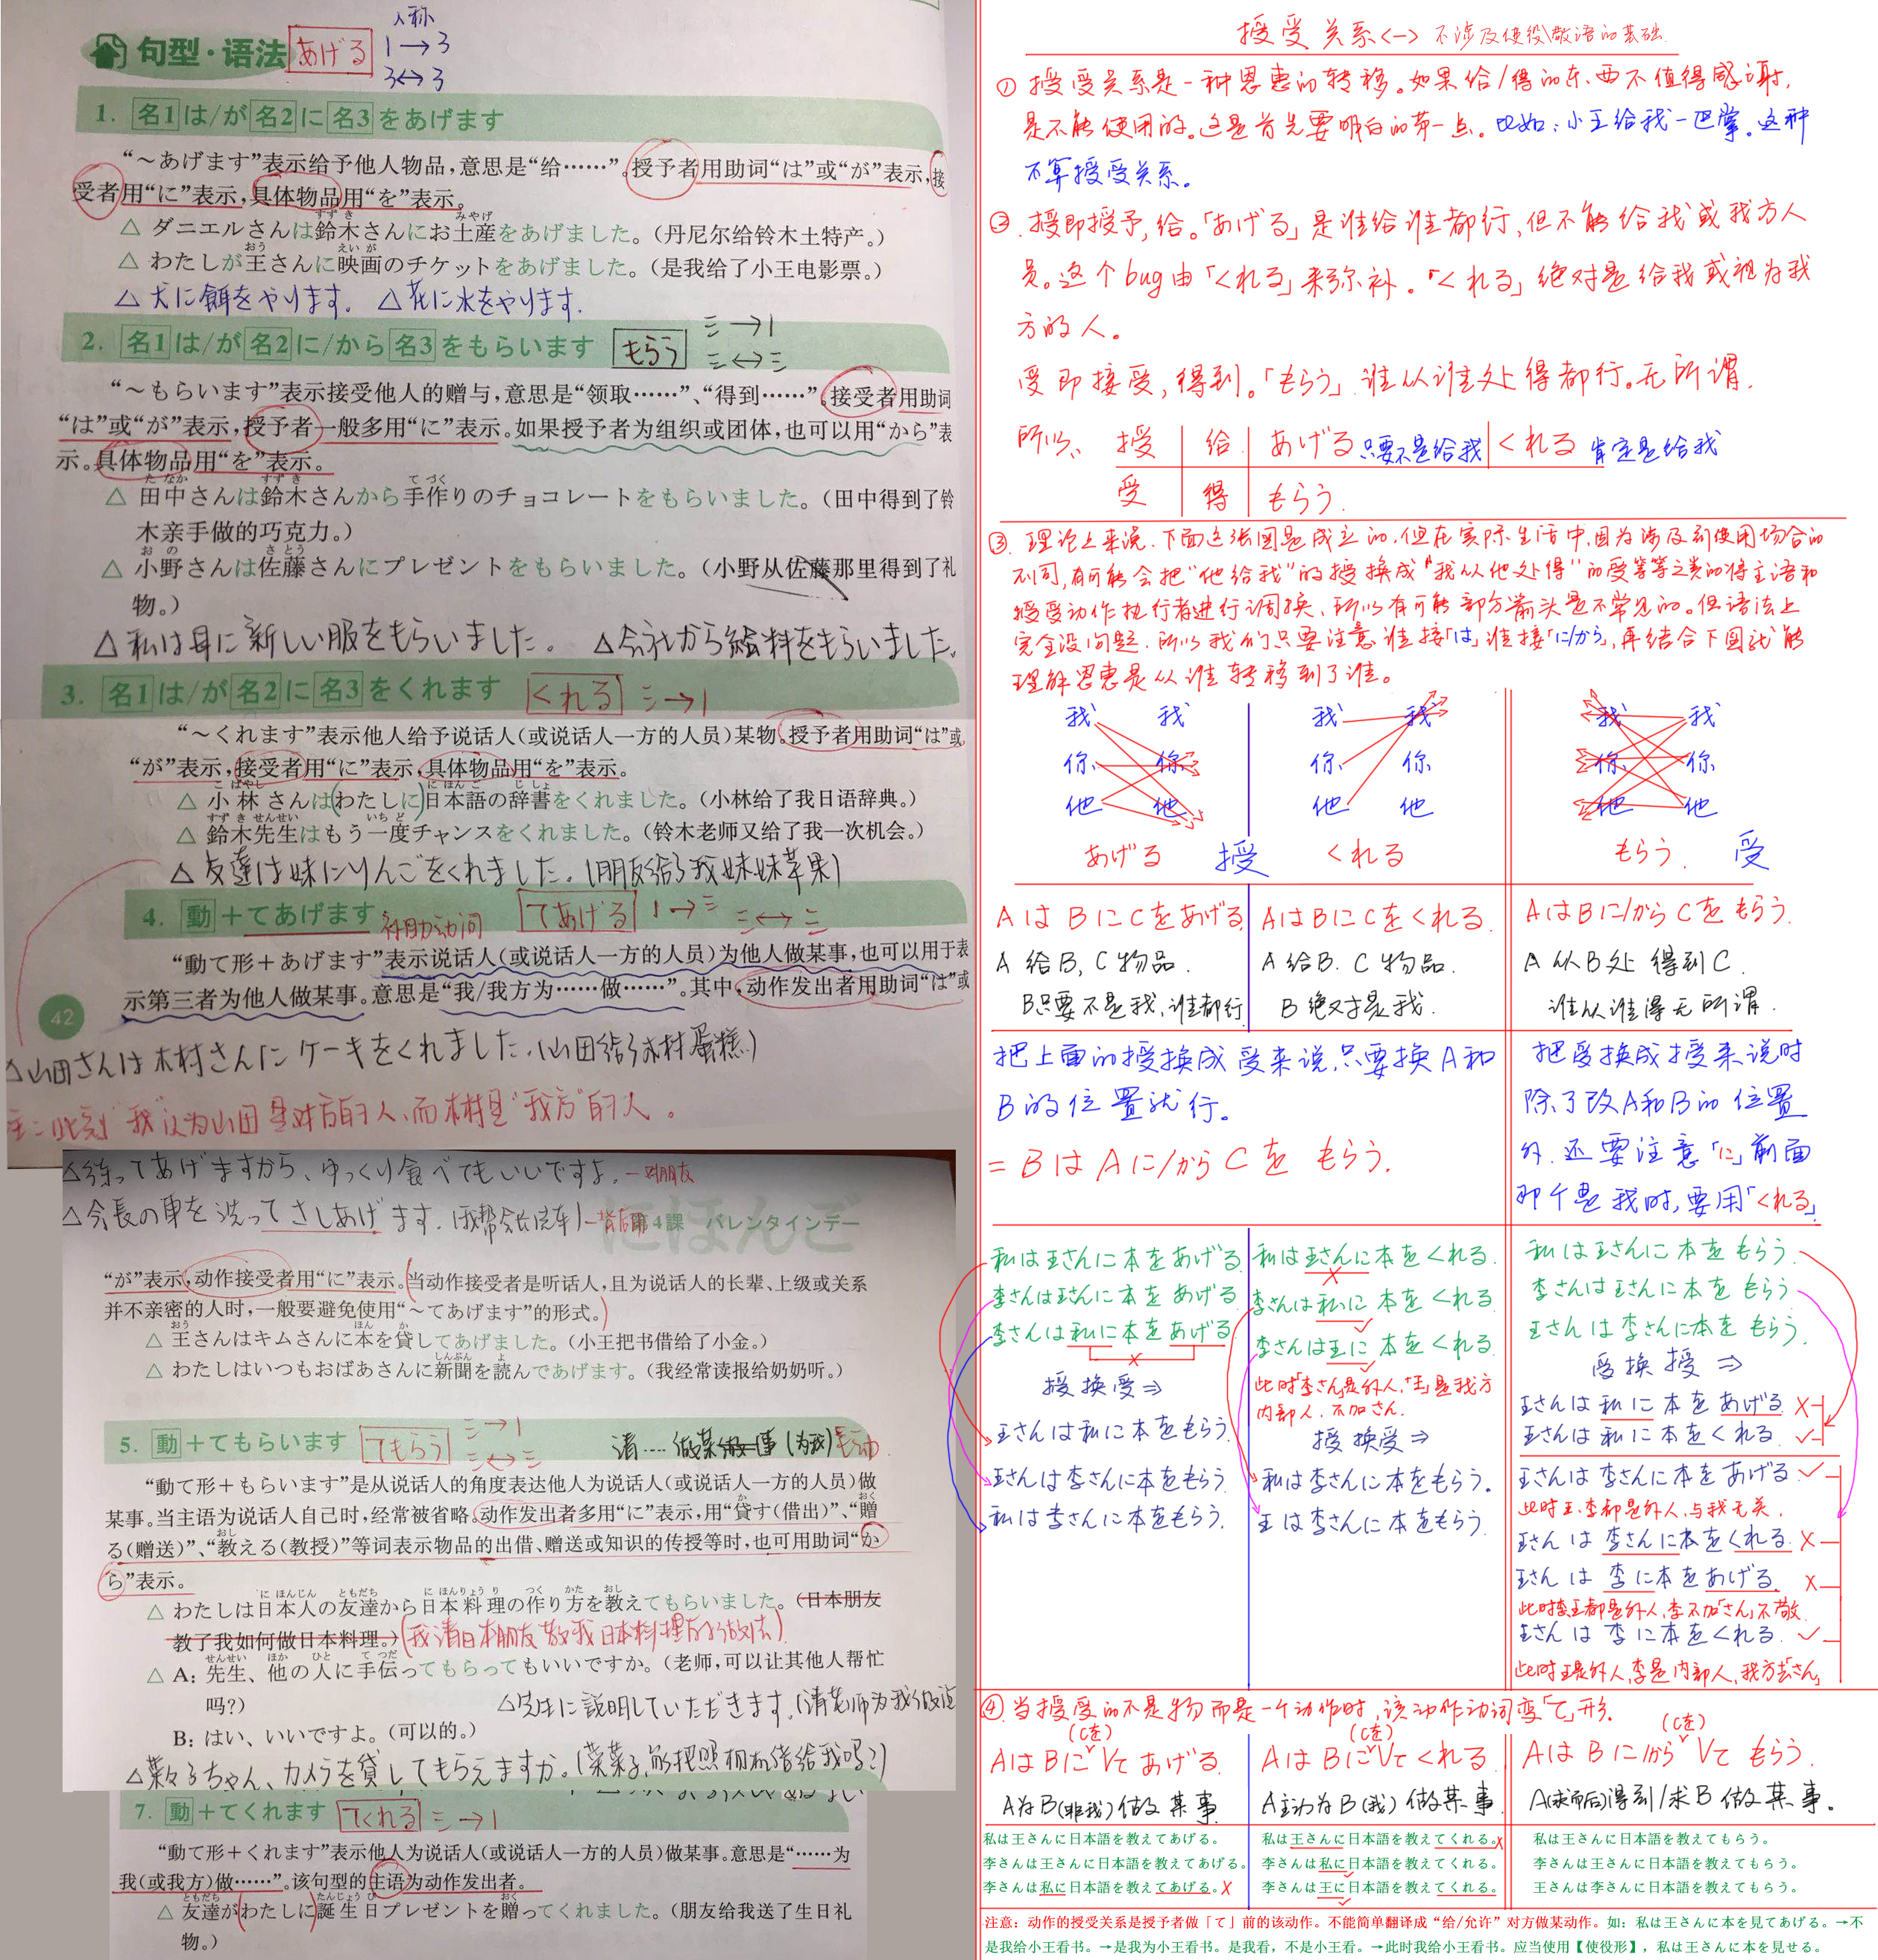 句型·语法 あげる
人称
1→3
3↔3
1. 名1は/が名2に名3をあげます
“~あげます”表示给予他人物品,意思是“给……”。授予者用助词“は”或“が”表示,接
受者用“に”表示,具体物品用“を”表示。
△ ダニエルさんは鈴木さんにお土産をあげました。(丹尼尔给铃木土特产。)
△ わたしが王さんに映画のチケットをあげました。(是我给了小王电影票。)
△ 犬に餌をやります. △ 花に水をやります.
2. 名1は/が名2に/から名3をもらいます もらう
三→1
三↔三
“~もらいます”表示接受他人的赠与,意思是“领取……”、“得到……”。接受者用助词
“は”或“が”表示,授予者一般多用“に”表示。如果授予者为组织或团体,也可以用“から”表
示。具体物品用“を”表示。
△ 田中さんは鈴木さんから手作りのチョコレートをもらいました。(田中得到了铃
木亲手做的巧克力。)
△ 小野さんは佐藤さんにプレゼントをもらいました。(小野从佐藤那里得到了礼
物。)
△ 私は母に新しい服をもらいました。 △会社から給料をもらいました.
3. 名1は/が名2に名3をくれます くれる 三→1
“~くれます”表示他人给予说话人(或说话人一方的人员)某物。授予者用助词“は”或
“が”表示,接受者用“に”表示,具体物品用“を”表示。
△ 小林さんは(わたしに)日本語の辞書をくれました。(小林给了我日语辞典。)
△ 鈴木先生はもう一度チャンスをくれました。(铃木老师又给了我一次机会。)
△ 友達は妹にりんごをくれました.(朋友给了我妹妹苹果)
4. 動+てあげます 补助动词 てあげる 1→三 三↔三
“動て形+あげます”表示说话人(或说话人一方的人员)为他人做某事,也可以用于表
示第三者为他人做某事。意思是“我/我方为……做……”。其中,动作发出者用助词“は”或
42
△山田さんは木村さんにケーキをくれました.(山田给了木村蛋糕.)
注:此刻“我”认为山田是对方的人,而木村是“我方”的人。
△待ってあげますから、ゆっくり食べてもいいですよ.—对朋友
△会長の車を洗ってさしあげます.(我帮会长洗车)—背后
第4課 バレンタインデー
“が”表示,动作接受者用“に”表示。(当动作接受者是听话人,且为说话人的长辈、上级或关系
并不亲密的人时,一般要避免使用“~てあげます”的形式。)
△ 王さんはキムさんに本を貸してあげました。(小王把书借给了小金。)
△ わたしはいつもおばあさんに新聞を読んであげます。(我经常读报给奶奶听。)
5. 動+てもらいます てもらう 三→1 三↔三 请....做某事(为我)
“動て形+もらいます”是从说话人的角度表达他人为说话人(或说话人一方的人员)做
某事。当主语为说话人自己时,经常被省略。动作发出者多用“に”表示,用“貸す(借出)”、“贈
る(赠送)”、“教える(教授)”等词表示物品的出借、赠送或知识的传授等时,也可用助词“か
ら”表示。
△ わたしは日本人の友達から日本料理の作り方を教えてもらいました。(日本朋友
教了我如何做日本料理。)(我请日本朋友教我日本料理的做法)
△ A: 先生、他の人に手伝ってもらってもいいですか。(老师,可以让其他人帮忙
吗?)
△先生に説明していただきます.
B: はい、いいですよ。(可以的。)
△菜々子ちゃん、カメラを貸してもらえますか.(菜菜子,能把照相机借给我吗?)
7. 動+てくれます てくれる 三→1
“動て形+くれます”表示他人为说话人(或说话人一方的人员)做某事。意思是“……为
我(或我方)做……”。该句型的主语为动作发出者。
△ 友達が(わたしに)誕生日プレゼントを贈ってくれました。(朋友给我送了生日礼
物。)
授受关系<一> 不涉及使役\敬语的基础.
① 授受关系是一种恩惠的转移。如果给/得的东西不值得感谢,
是不能使用的。这是首先要明白的第一点。比如:小王给我一巴掌。这种
不算授受关系。
②. 授即授予,给。「あげる」是谁给谁都行,但不能给我或我方人
员。这个bug由「くれる」来弥补。「くれる」绝对是给我或视为我
方的人。
受即接受,得到。「もらう」谁从谁处得都行。无所谓.
所以、 授 给 あげる 只要不是给我 くれる 肯定是给我
受 得 もらう.
③. 理论上来说.下面这张图是成立的.但在实际生活中,因为涉及到使用场合的
不同,有可能会把“他给我”的授换成“我从他处得”的受等等之类的将主语和
授受动作执行者进行调换、所以有可能部分箭头是不常见的。但语法上
完全没问题.所以我们只要注意谁接「は」谁接「に/から」,再结合下图就能
理解恩惠是从谁转移到了谁。
我 我 我 我 我 我
你 你 你 你 你 你
他 他 他 他 他 他
あげる 授 くれる もらう. 受
AはBにCをあげる AはBにCをくれる. AはBに/からCをもらう.
A给B, C物品. A给B. C物品. A从B处得到C.
B只要不是我,谁都行 B绝对是我. 谁从谁得无所谓.
把上面的授换成受来说,只要换A和
B的位置就行。
= BはAに/からCをもらう.
把受换成授来说时
除了改A和B的位置
外.还要注意「に」前面
那个是我时,要用「くれる」.
私は王さんに本をあげる.
李さんは王さんに本をあげる
李さんは私に本をあげる ×
授换受⇒
王さんは私に本をもらう.
王さんは李さんに本をもらう
私は李さんに本をもらう.
私は王さんに本をくれる. ×
李さんは私に本をくれる. ✓
李さんは王に本をくれる. ✓
此时「李さん」是外人,「王」是我方
内部人.不加さん.
授换受⇒
私は李さんに本をもらう。
王は李さんに本をもらう.
私は王さんに本をもらう.
李さんは王さんに本をもらう
王さんは李さんに本をもらう.
受换授⇒
王さんは私に本をあげる ×
王さんは私に本をくれる. ✓
王さんは李さんに本をあげる ✓
此时王.李都是外人,与我无关.
王さんは李さんに本をくれる. ×
王さんは李に本をあげる. ×
此时李王都是外人,李不加「さん」不敬.
王さんは李に本をくれる. ✓
此时王是外人,李是内部人,我方去「さん」
④.当授受的不是物而是一个动作时,该动作动词变「て」形.
(Cを) (Cを) (Cを)
AはBにVてあげる. AはBにVてくれる. AはBに/からVてもらう.
A为B(非我)做某事 A主动为B(我)做某事. A(求而后)得到/求B做某事。
私は王さんに日本語を教えてあげる。 私は王さんに日本語を教えてくれる。× 私は王さんに日本語を教えてもらう。
李さんは王さんに日本語を教えてあげる。 李さんは私に日本語を教えてくれる。 李さんは王さんに日本語を教えてもらう。
李さんは私に日本語を教えてあげる。× 李さんは王に日本語を教えてくれる。 王さんは李さんに日本語を教えてもらう。
注意：动作的授受关系是授予者做「て」前的该动作。不能简单翻译成“给/允许”对方做某动作。如：私は王さんに本を見てあげる。→不
是我给小王看书。→是我为小王看书。是我看，不是小王看。→此时我给小王看书。应当使用【使役形】，私は王さんに本を見せる。